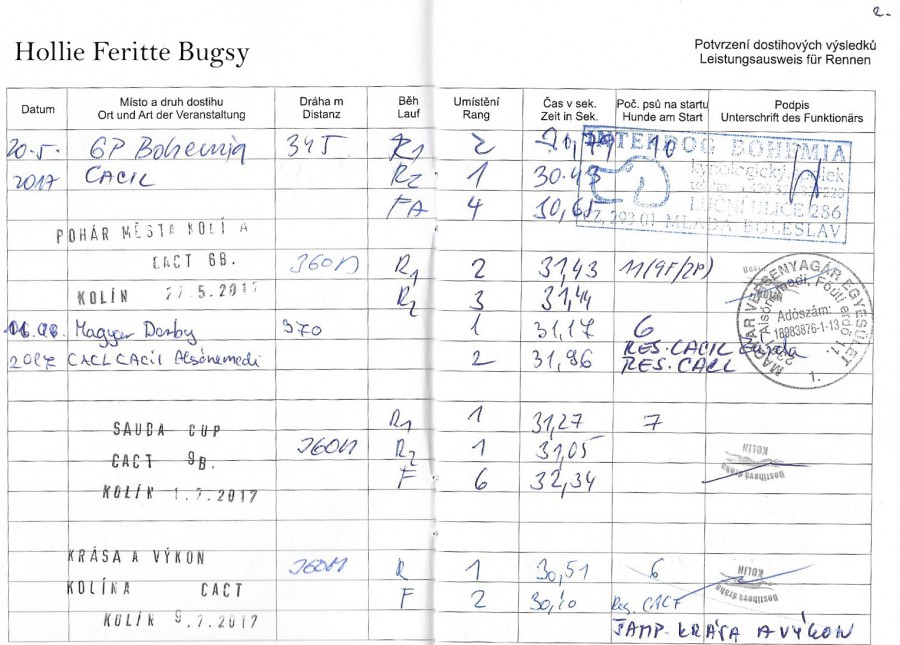 2.
Hollie Feritte Bugsy
Potvrzení dostihových výsledků
Leistungsausweis für Rennen
Datum Místo a druh dostihu Dráha m Běh Umístění Čas v sek. Poč. psů na startu Podpis
Ort und Art der Veranstaltung Distanz Lauf Rang Zeit in Sek. Hunde am Start Unterschrift des Funktionärs
20.5. GP Bohemia 345 R1 2 10
2017 CACIL R2 1 30.43
FA 4 30,65
INTERDOG BOHEMIA
kynologický
LUČNÍ ULICE 286
293 01 MLADÁ BOLESLAV
POHÁR MĚSTA KOLÍ A
CACT 6B. 360m R1 2 31,43 11(9F/2P)
KOLÍN 27.5.2017 R2 3 31,44
Magyar Derby 370 1 31,17 6
2017 CACL CACIL Alsónémedi 2 31,96 RES. CACIL
RES. CACL
MAGYAR VERSENYAGÁR EGYESÜLET
Alsónémedi, Fő út
Adószám:
18983876-1-13
1.
R1 1 31,27 7
SAUDA CUP
CACT 9B. 360m R2 1 31,05
KOLÍN 1.7.2017 F 6 32,34
KOLÍN
Dostihová dráha
KRÁSA A VÝKON 360m R 1 30,51 6
KOLÍNA CACT F 2 30,10 Res. CACT
KOLÍN 9.7.2017
KOLÍN
Dostihová dráha
ŠAMP. KRÁSA A VÝKON